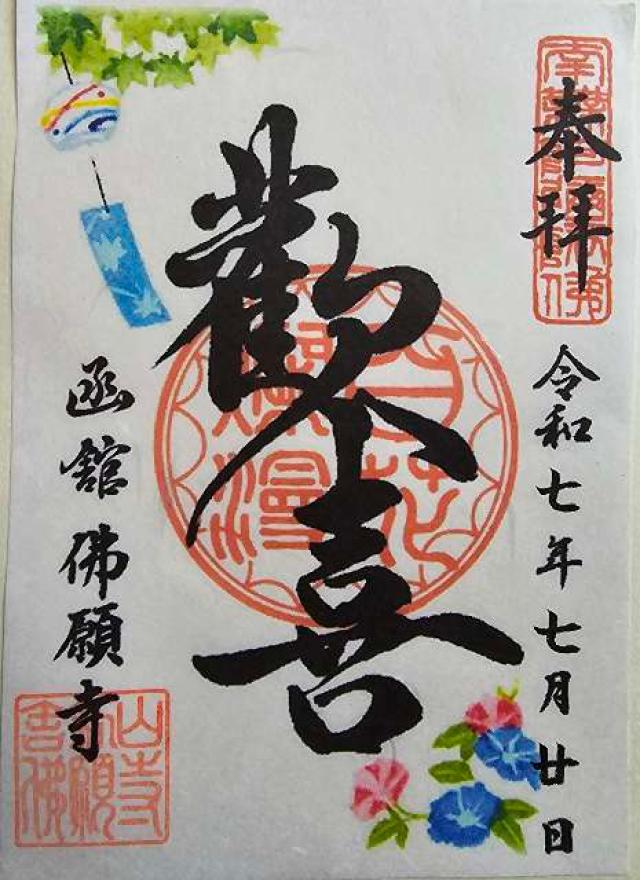 奉拝
令和七年七月廿日
歡喜
函館佛願寺